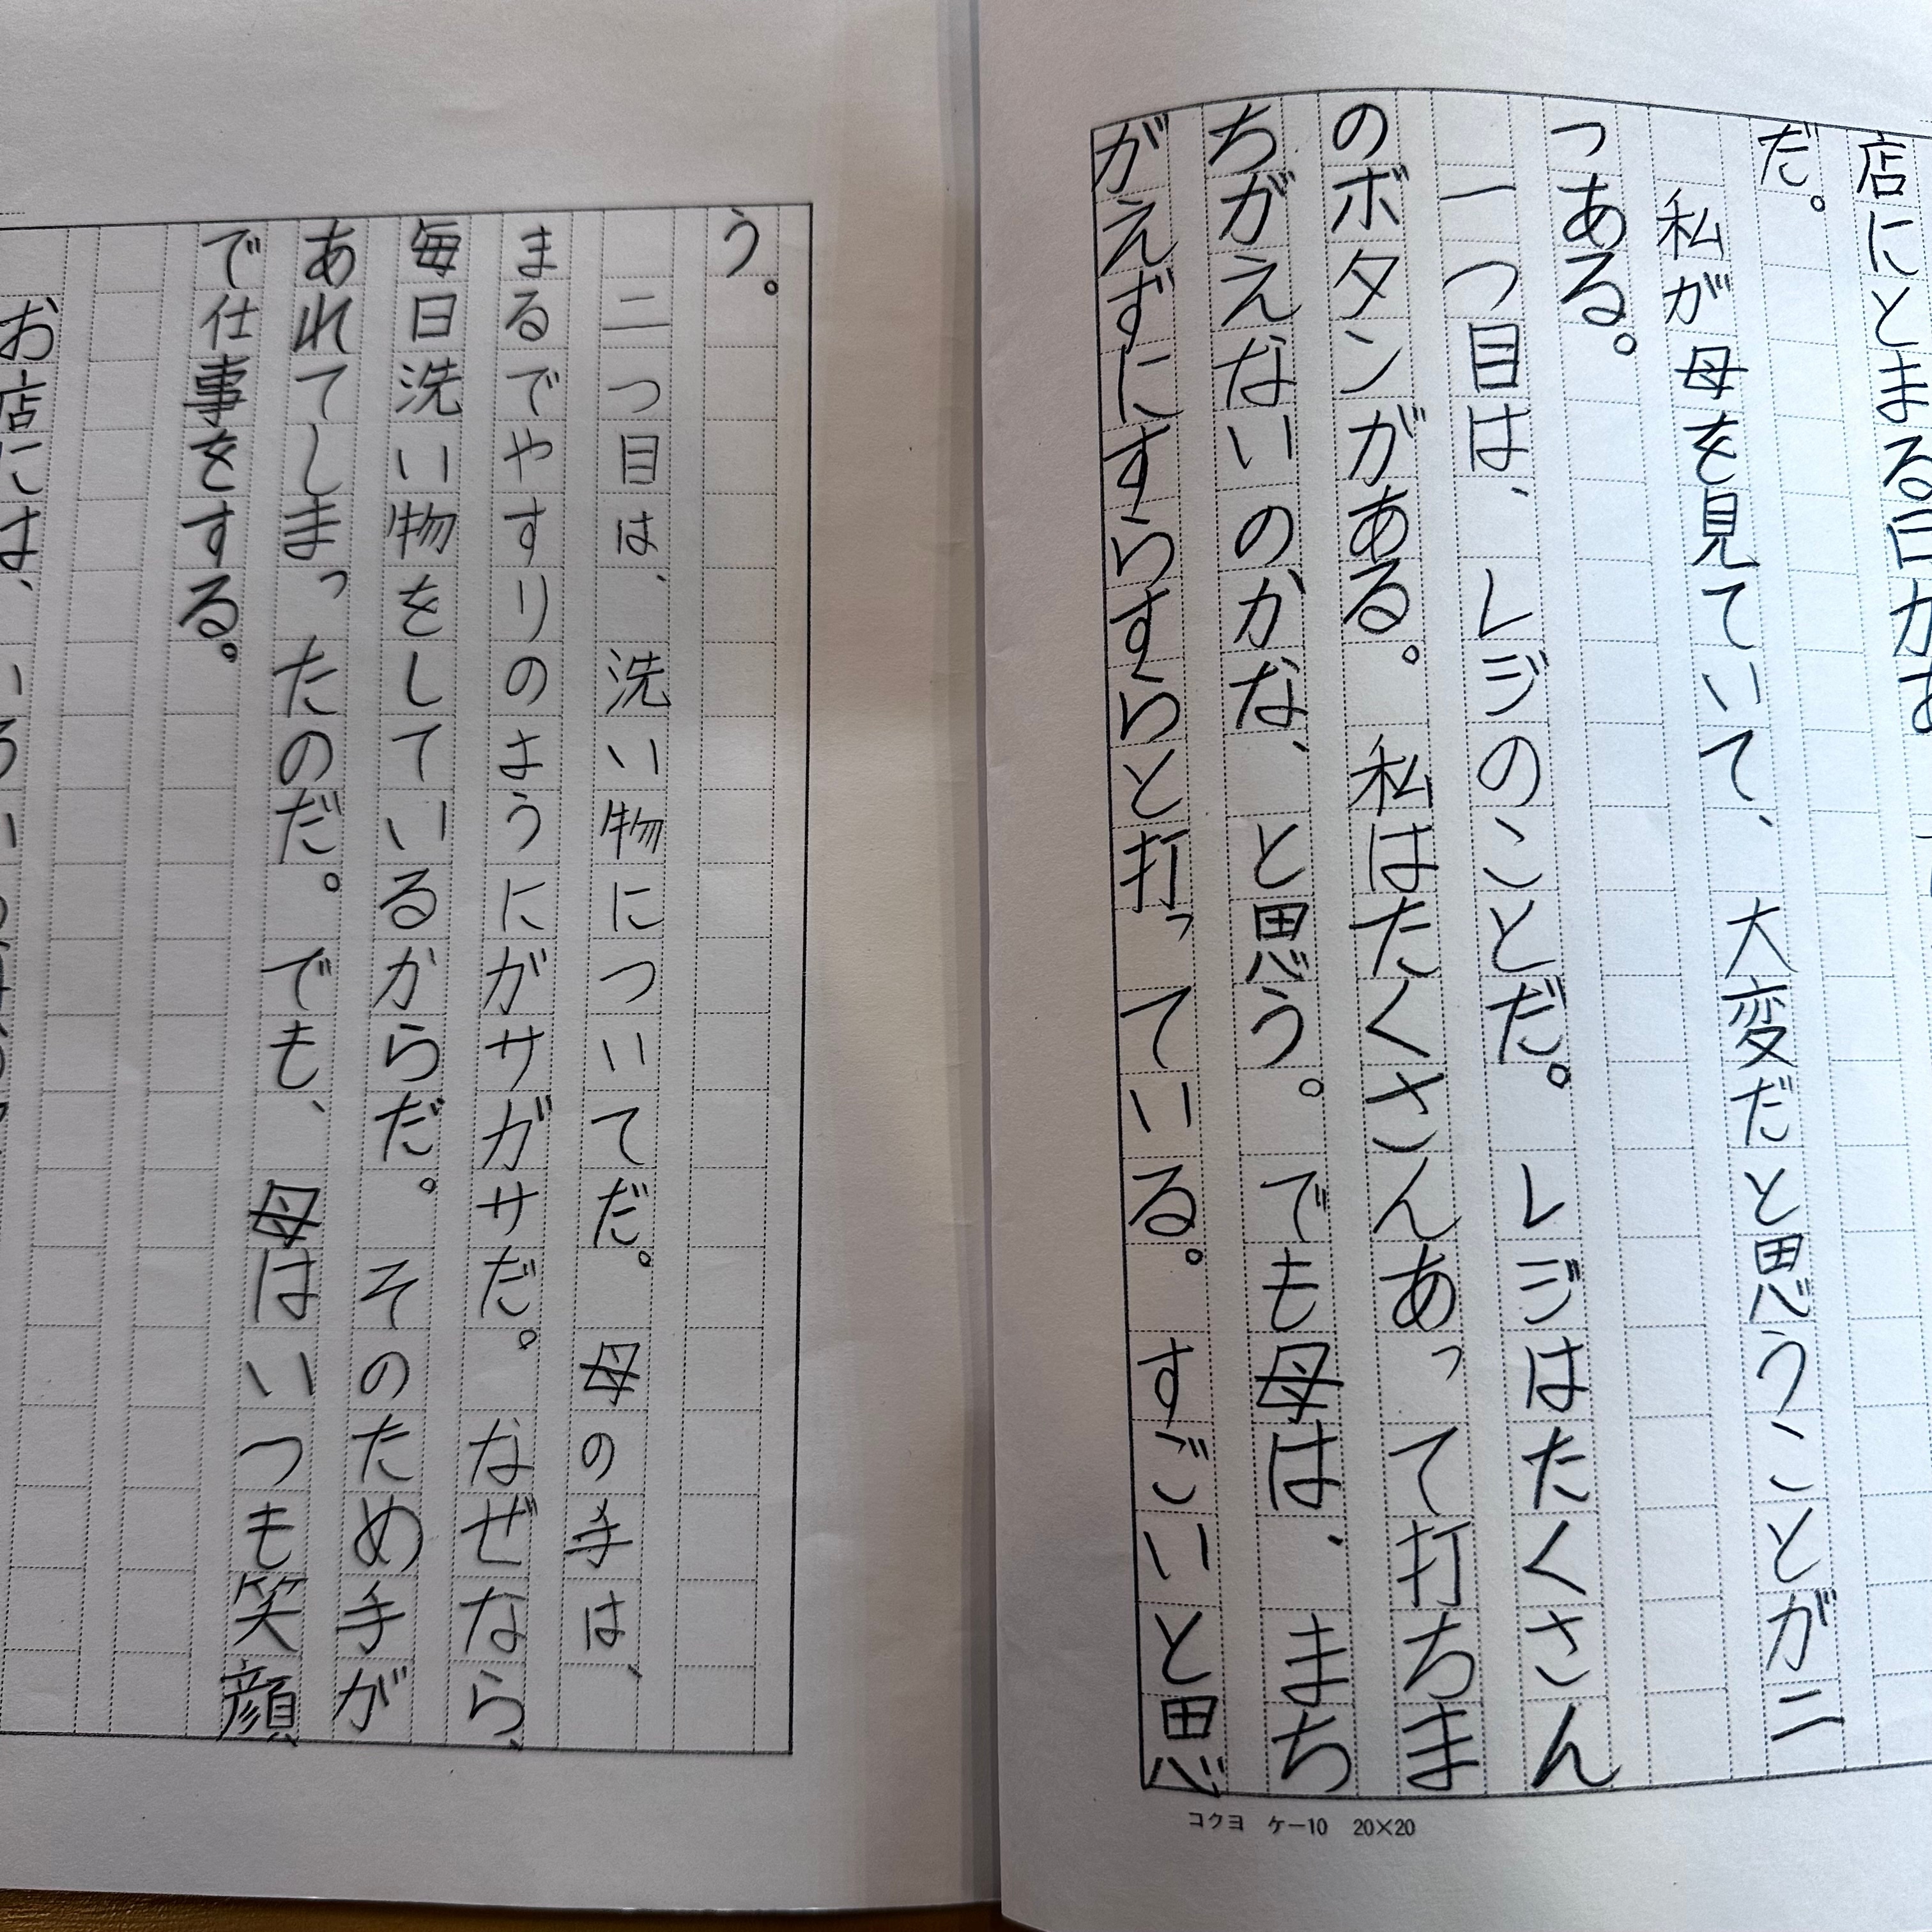 店にとまる日が
だ。
私が母を見ていて、大変だと思うことが二
つある。
一つ目は、レジのことだ。レジはたくさん
のボタンがある。私はたくさんあって打ちま
ちがえないのかな、と思う。でも母は、まち
がえずにすらすらと打っている。すごいと思
コクヨ ケー10 20×20
う。
二つ目は、洗い物についてだ。母の手は、
まるでやすりのようにガサガサだ。なぜなら、
毎日洗い物をしているからだ。そのため手が
あれてしまったのだ。でも、母はいつも笑顔
で仕事をする。
お店には、いろいろ